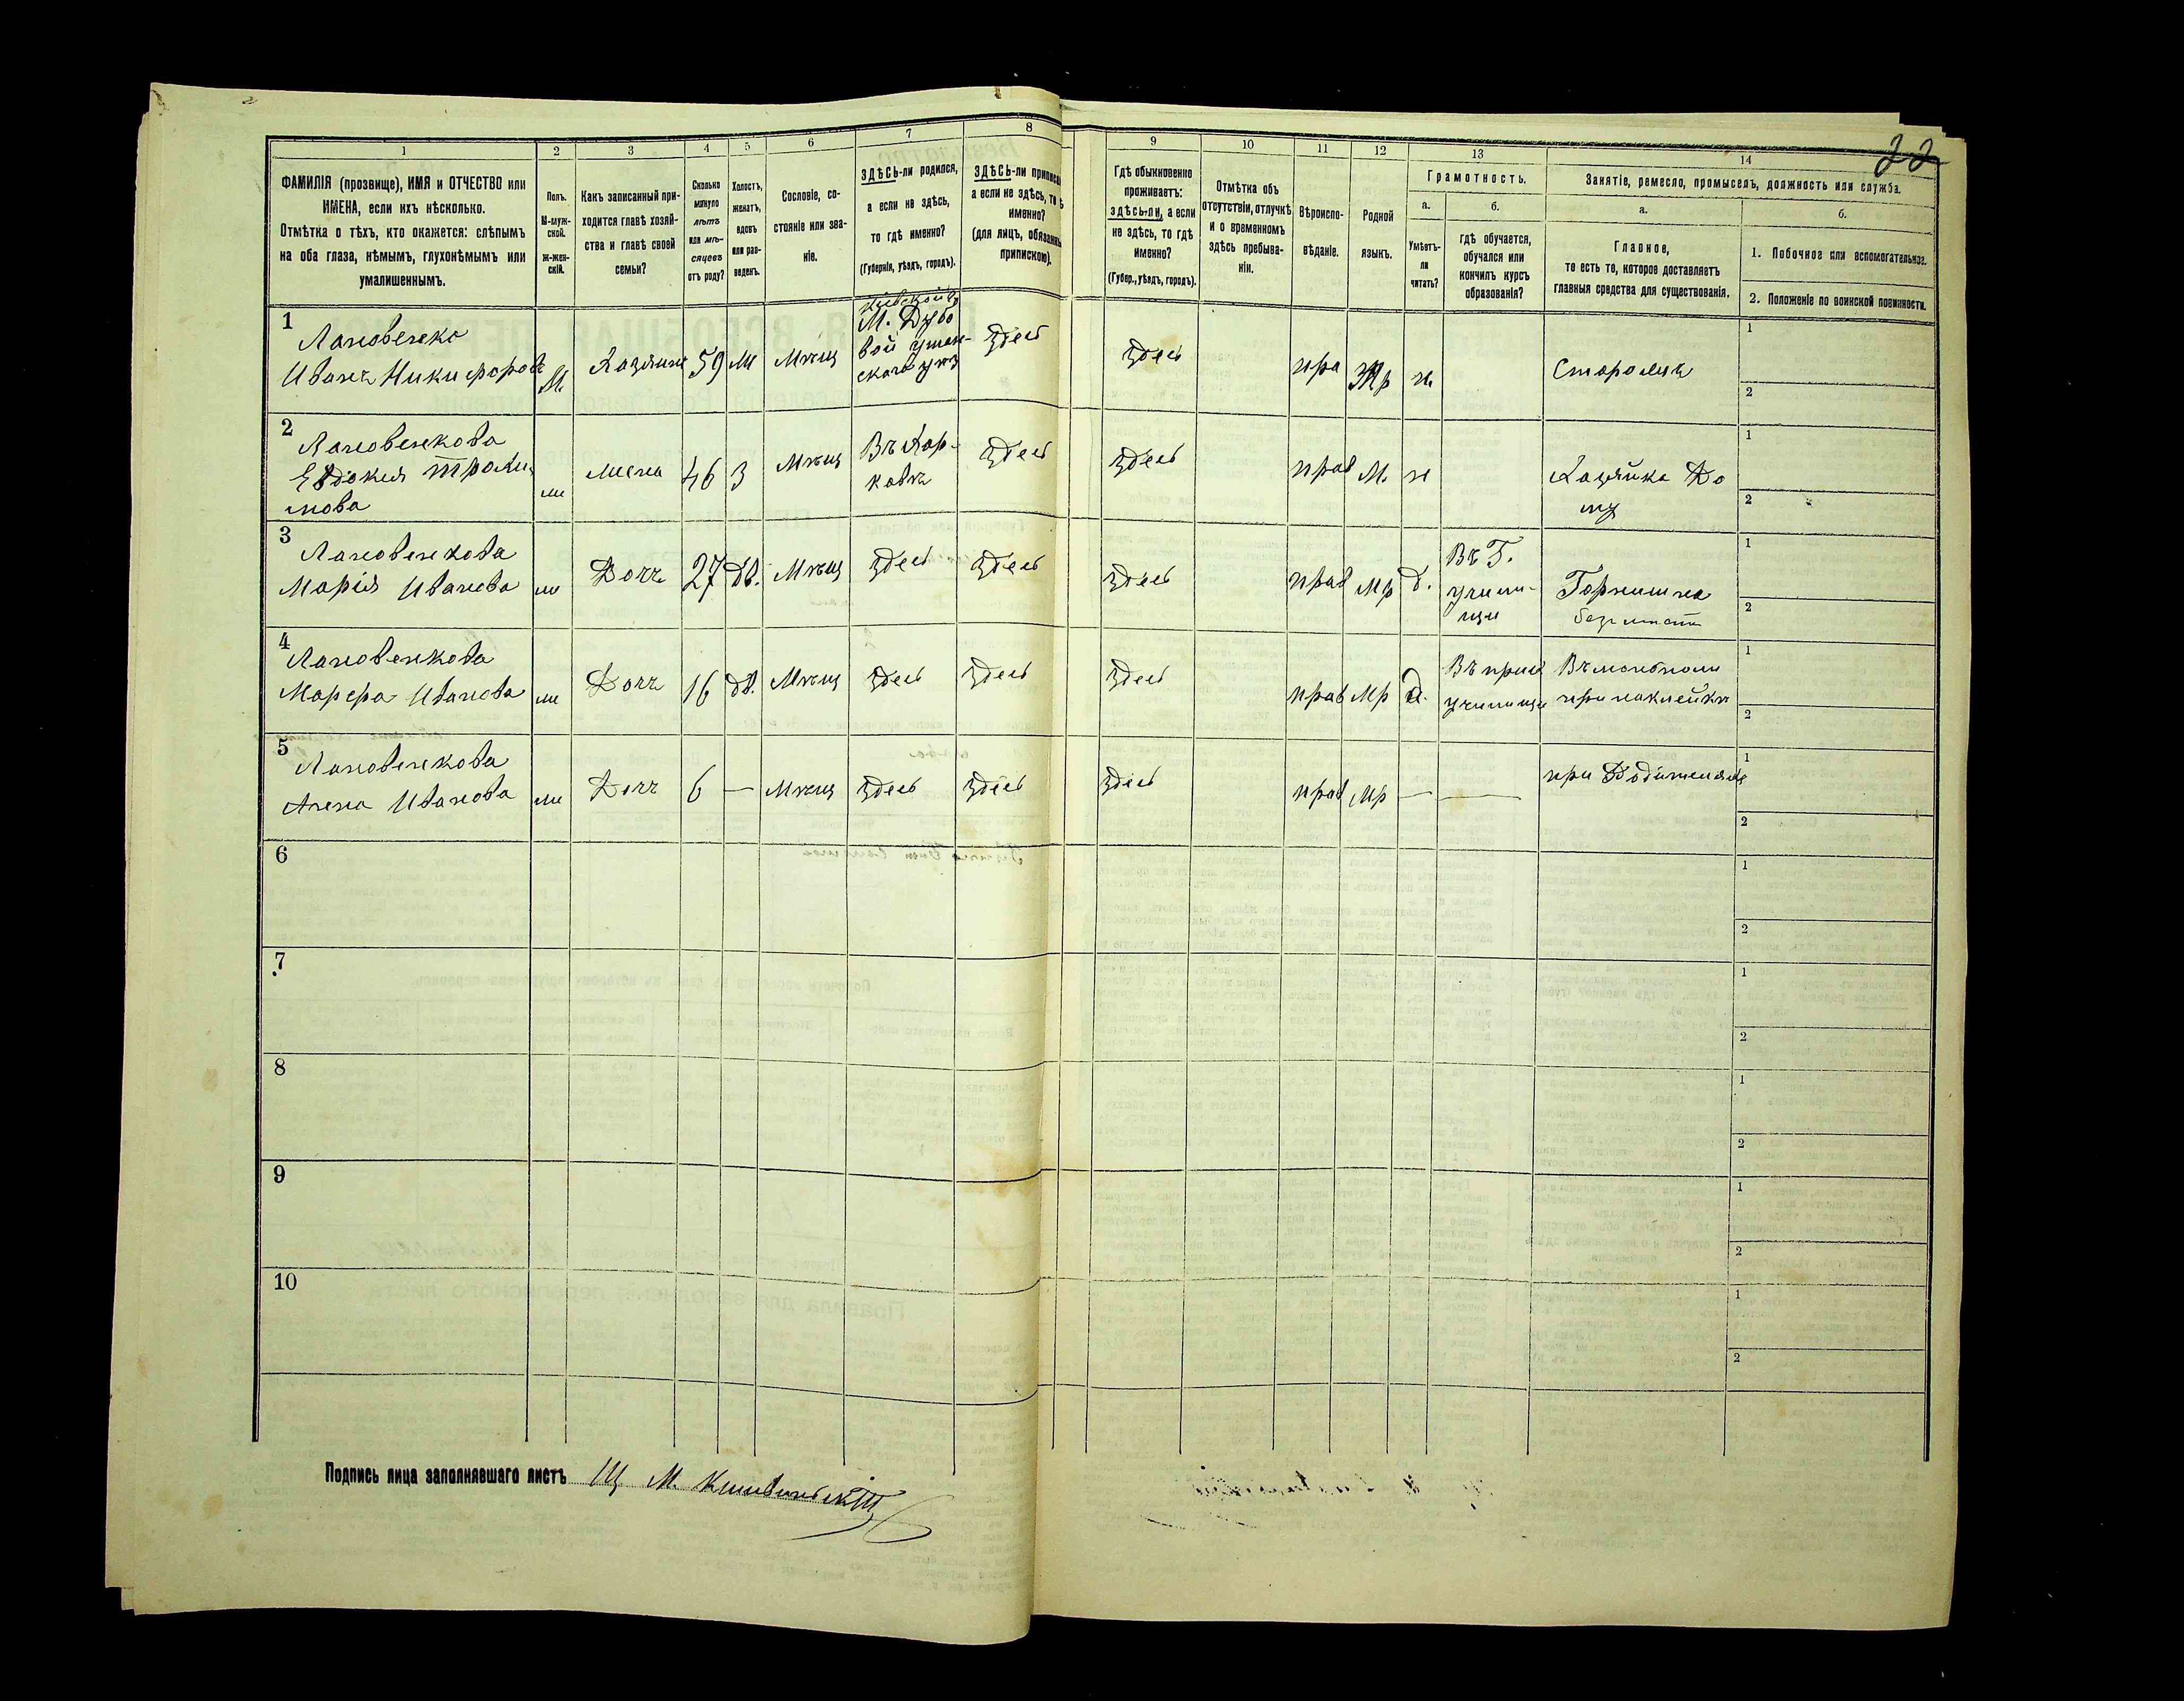 22
1 2 3 4 5 6 7 8 9 10 11 12 13 14
ФАМИЛІЯ (прозвище), ИМЯ и ОТЧЕСТВО или
ИМЕНА, если ихъ нѣсколько.
Отмѣтка о тѣхъ, кто окажется: слѣпымъ
на оба глаза, нѣмымъ, глухонѣмымъ или
умалишеннымъ.
Полъ.
М-муж-
ской.
Ж-жен-
скій.
Какъ записанный при-
ходится главѣ хозяй-
ства и главѣ своей
семьи?
Сколько
минуло
лѣтъ
или мѣ-
сяцевъ
отъ роду?
Холостъ,
женатъ,
вдовъ
или раз-
веденъ.
Сословіе, со-
стояніе или зва-
ніе.
ЗДѢСЬ-ли родился,
а если не здѣсь,
то гдѣ именно?
(Губернія, уѣздъ, городъ).
ЗДѢСЬ-ли приписа
а если не здѣсь, то
именно?
(для лицъ, обязанн
припискою).
Гдѣ обыкновенно
проживаетъ:
здѣсь-ли, а если
не здѣсь, то гдѣ
именно?
(Губер., уѣздъ, городъ).
Отмѣтка объ
отсутствіи, отлучкѣ
и о временномъ
здѣсь пребыва-
ніи.
Вѣроиспо-
вѣданіе.
Родной
языкъ.
Грамотность.
а.
Умѣетъ-
ли
читать?
б.
гдѣ обучается,
обучался или
кончилъ курсъ
образованія?
Занятіе, ремесло, промыселъ, должность или служба.
а.
Главное,
то есть то, которое доставляетъ
главныя средства для существованія.
б.
1. Побочное или вспомогательное.
2. Положеніе по воинской повинности.
1
Иванъ Никифоров
М
59
М
Мѣщ
М. Дубо
вой уман-
здесь
здесь
пра
н
Сторожъ
1
2
2
Евдокия
жена
46
З
Мѣщ
Въ Хар-
ковѣ
здесь
здесь
прав
М.
н
Хазяйка До
му
1
2
3
Марія Иванова
ж
Дочь
27
дв.
Мѣщ
здесь
здесь
здесь
прав
Мр
Въ Г.
училищ
Горнишна
1
2
4
Марфа Иванова
ж
Дочь
16
дв.
Мѣщ
здесь
здесь
здесь
прав
Мр
Въ прих
училищи
Въ монополи
при наклейкѣ
1
2
5
Анна Иванова
ж
Дочь
6
—
Мѣщ
здесь
здесь
здесь
прав
Мр
—
—
при
1
2
6
1
2
7
1
2
8
1
2
9
1
2
10
1
2
Подпись лица заполнявшаго листъ